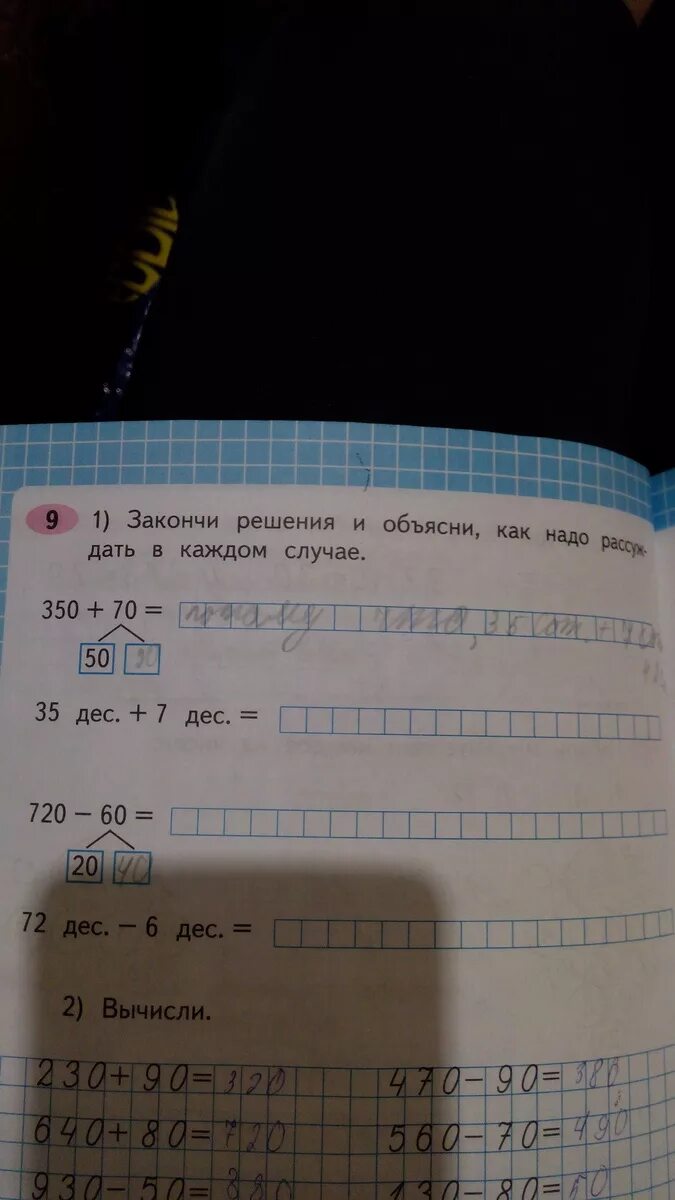 9 1) Закончи решения и объясни, как надо рассуж-
дать в каждом случае.
350 + 70 = потому что, 35
50 20
35 дес. + 7 дес. =
720 – 60 =
20 40
72 дес. – 6 дес. =
2) Вычисли.
230+90=320 470–90=380
640+80=720 560–70=490
930–50=880 130–80=50